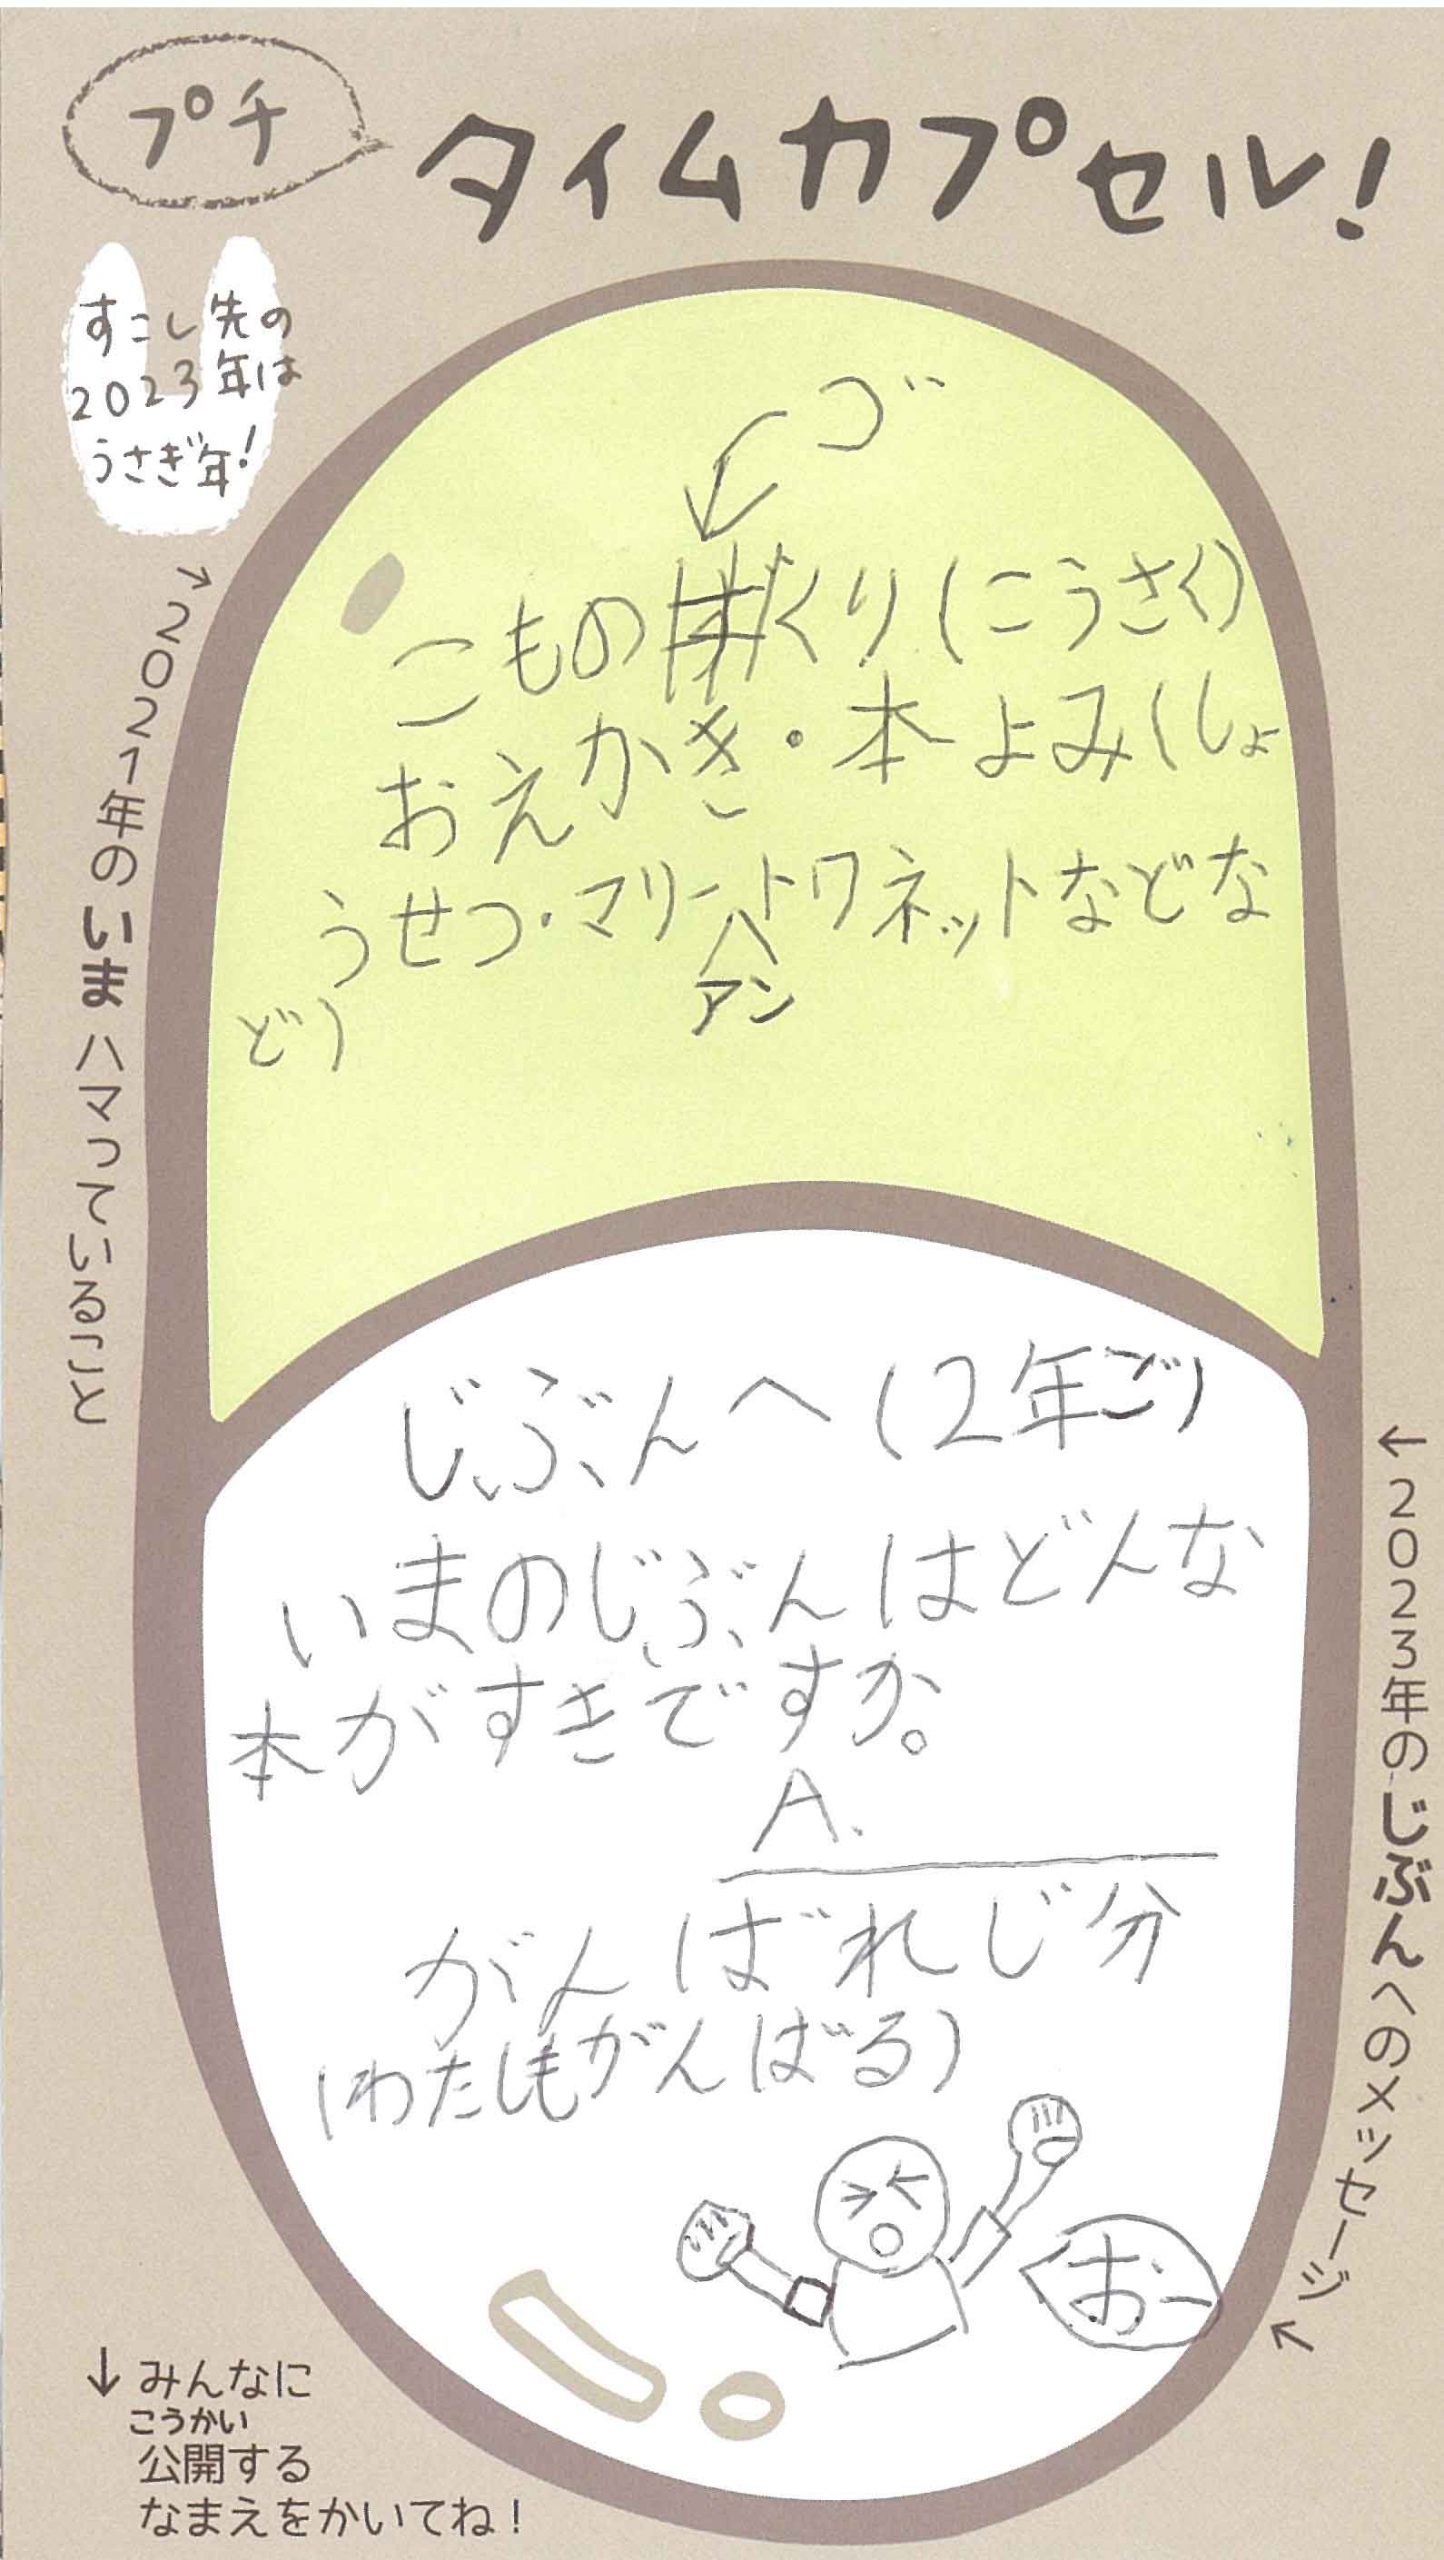 プチ
タイムカプセル!
すこし先の
2023年は
うさぎ年!
→2021年のいまハマっていること
づ
こものずくり(こうさく)
おえかき・本よみ(しょ
うせつ・マリートワネットなどな
アン
ど)
←2023年のじぶんへのメッセージ
じぶんへ(2年ご)
いまのじぶんはどんな
本がすきですか。
A.
がんばれじ分
(わたしもがんばる)
おー
↓みんなに
こうかい
公開する
なまえをかいてね!